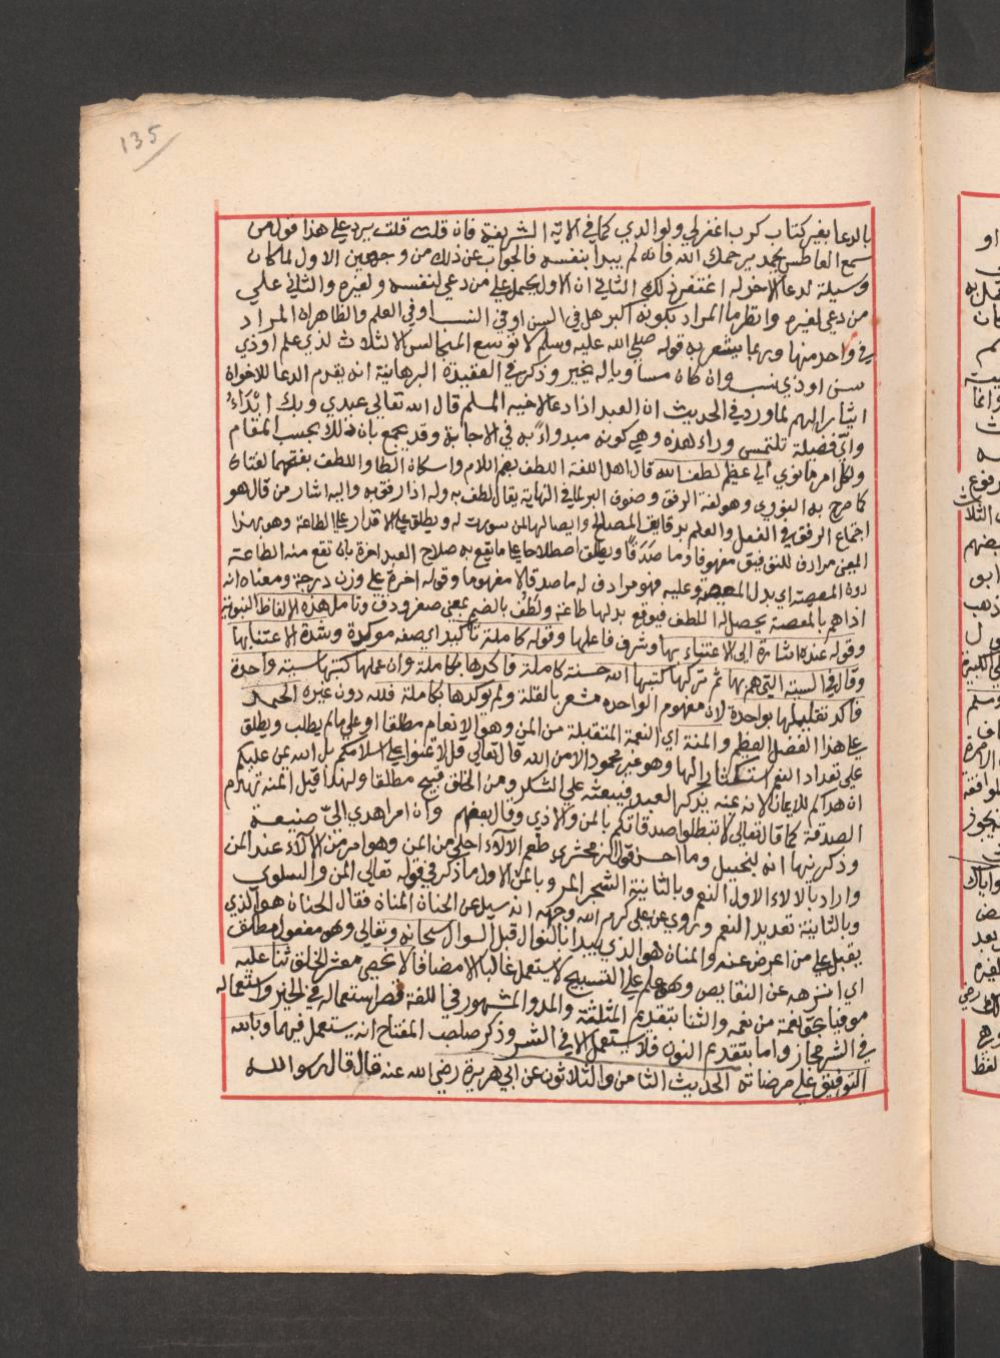 135
بالدعا بغير كتاب كرب اغفر لي ولوالدي كما في الاية الشريفة فان قلت قلت يرد علي هذا قول من
سمع العاطس يحمد يرحمك الله فانه لم يبدا بنفسه فالجواب عن ذلك من وجهين الاول لما كان
وسيلة لدعا الاخ له اغتفر ذلك الثاني ان الاول يحمل علي من دعي لنفسه ولغيره والثاني علي
من دعي لغيره وانظر ما المراد بكونه اكبر هل في السن او في النسب او في العلم والظاهر ان المراد
في واحد منها وربما يشعر به قوله صلي الله عليه وسلم لا توسع المجالس الا لثلاث لذي علم او ذي
سن او ذي نسب وان كان مساويا له يخير وذكر في العقيدة البرهانية انه يقدم الدعا للاخوان
ايثارا لهم لما ورد في الحديث ان العبد اذا دعا لاخيه المسلم قال الله تعالي عبدي وبك ابْدَاءُ
واي فضيلة تلتمس وراء هذه وهي كونه مبدواً به في الاجابة وقد يجمع بان ذلك بحسب المقام
ولكل امر ما نوي الي عظيم لطف الله قال اهل اللغة اللطف بضم اللام واسكان الطا واللطف بفتحهما لغتان
كما صرح به النووي وهو لغة الرفق وصنوف البر لما في النهاية يقال لطف به وله اذا رفق به واليه اشار من قال هو
اجتماع الرفق في الفعل والعلم بدقايق المصالح وايصالها لمن سويت له ويطلق علي الاقدار علي الطاعة وهو بهذا
المعني مرادف للتوفيق مفهوما وما صَدَقا ويطلق اصطلاحا علي ما يقع به صلاح العبد اخرة بان تقع منه الطاعة
دون المعصية اي بدل المعصية وعليه فهو مرادف له ما صدقا لا مفهوما وقوله اخرة علي وزن درجة ومعناه انه
اذا هم بالمعصية يحصل له اللطف فيوقع بدلها طاعة ولَطُف بالضم بمعني صغر ودق وتامل هذه الالفاظ النبوية
وقوله عنده اشارة الي الاعتناء بها وشرف فاعلها وقوله كاملة تاكيد اي صفة موكدة وشدة الاعتنا بها
وقال في السيئة التي هم بها ثم تركها كتبها الله حسنة كاملة فاكدها بكاملة وان عملها كتبها سيئة واحدة
فاكد تقليلها بواحدة لان مفهوم الواحده مشعر بالقلة ولم يوكدها بكاملة فلله دون غيره الحمد
علي هذا الفضل العظيم والمنة اي النعمة المثقلة من المن وهو الانعام مطلقا او علي ما لم يطلب ويطلق
علي تعداد النعم استكثارا لها وهو غير محمود الا من الله قال تعالي قل لا تمنوا علي اسلامكم بل الله يمن عليكم
ان هداكم للايمان لانه عنه يذكر العبد فيبعثه علي الشكر ومن الخلق قبيح مطلقا ولهذا قيل المنة تهدم
الصدقة كما قال تعالي لا تبطلوا صدقاتكم بالمن والاذي وقال بعضهم وان امرا اهدي الي صنيعة
وذكرنيها انه لبخيل وما احسن قول الزمخشري طعم الآلاء احلي من المن وهو امر من الالاء عند المن
واراد بالالاء الاول النعم وبالثانية الشجر المر وبالمن الاول ما ذكر في قوله تعالي المن والسلوي
وبالثانية تعديد النعم وروي عن علي كرم الله وجهه انه سيل عن الحنان المنان فقال الحنان هو الذي
يقبل علي من اعرض عنه والمنان هو الذي يبدا بالنوال قبل السوال سبحانه وتعالي وهو مفعول مطلق
اي انزهه عن النقايص وهو علم علي التسبيح لا يستعمل غالبا الا مضافا لا نحصي معشر الخلق ثنا عليه
موفيا بحق نعمة من نعمه والثنا بتقديم المثلثة والمد والمشهور في اللغة قصر استعماله في الخير واستعماله
في الشر مجاز واما بتقديم النون فلا يستعمل الا في الشر وذكر صاحب المفتاح انه يستعمل فيهما وبالله
التوفيق علي مرضاته الحديث الثامن والثلاثون عن ابي هريرة رضي الله عنه قال قال رسول الله